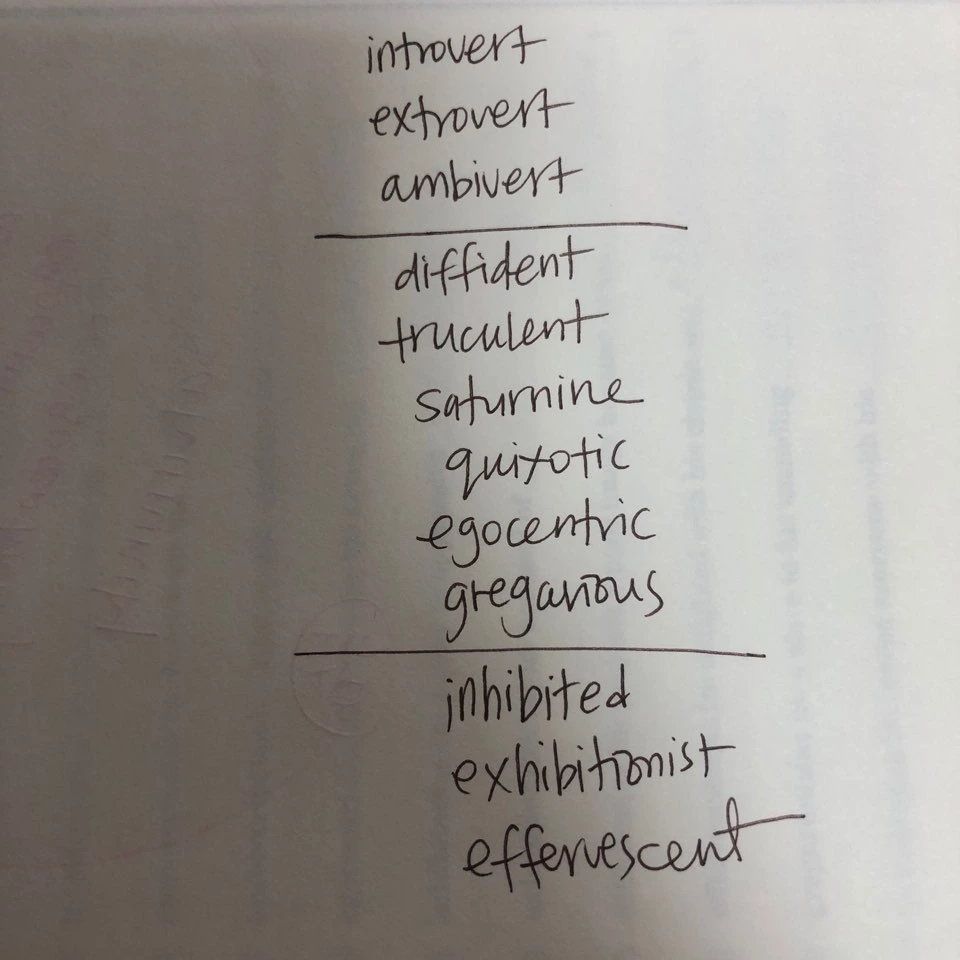 introvert
extrovert
ambivert
diffident
truculent
saturnine
quixotic
egocentric
gregarious
inhibited
exhibitionist
effervescent